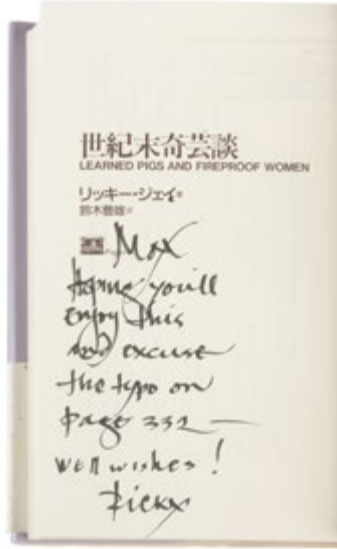 世紀末奇芸談
LEARNED PIGS AND FIREPROOF WOMEN
リッキー・ジェイ
鈴木豊雄
Max
Hoping you'll
enjoy this
and excuse
the typo on
page 332 —
well wishes!
Ricky